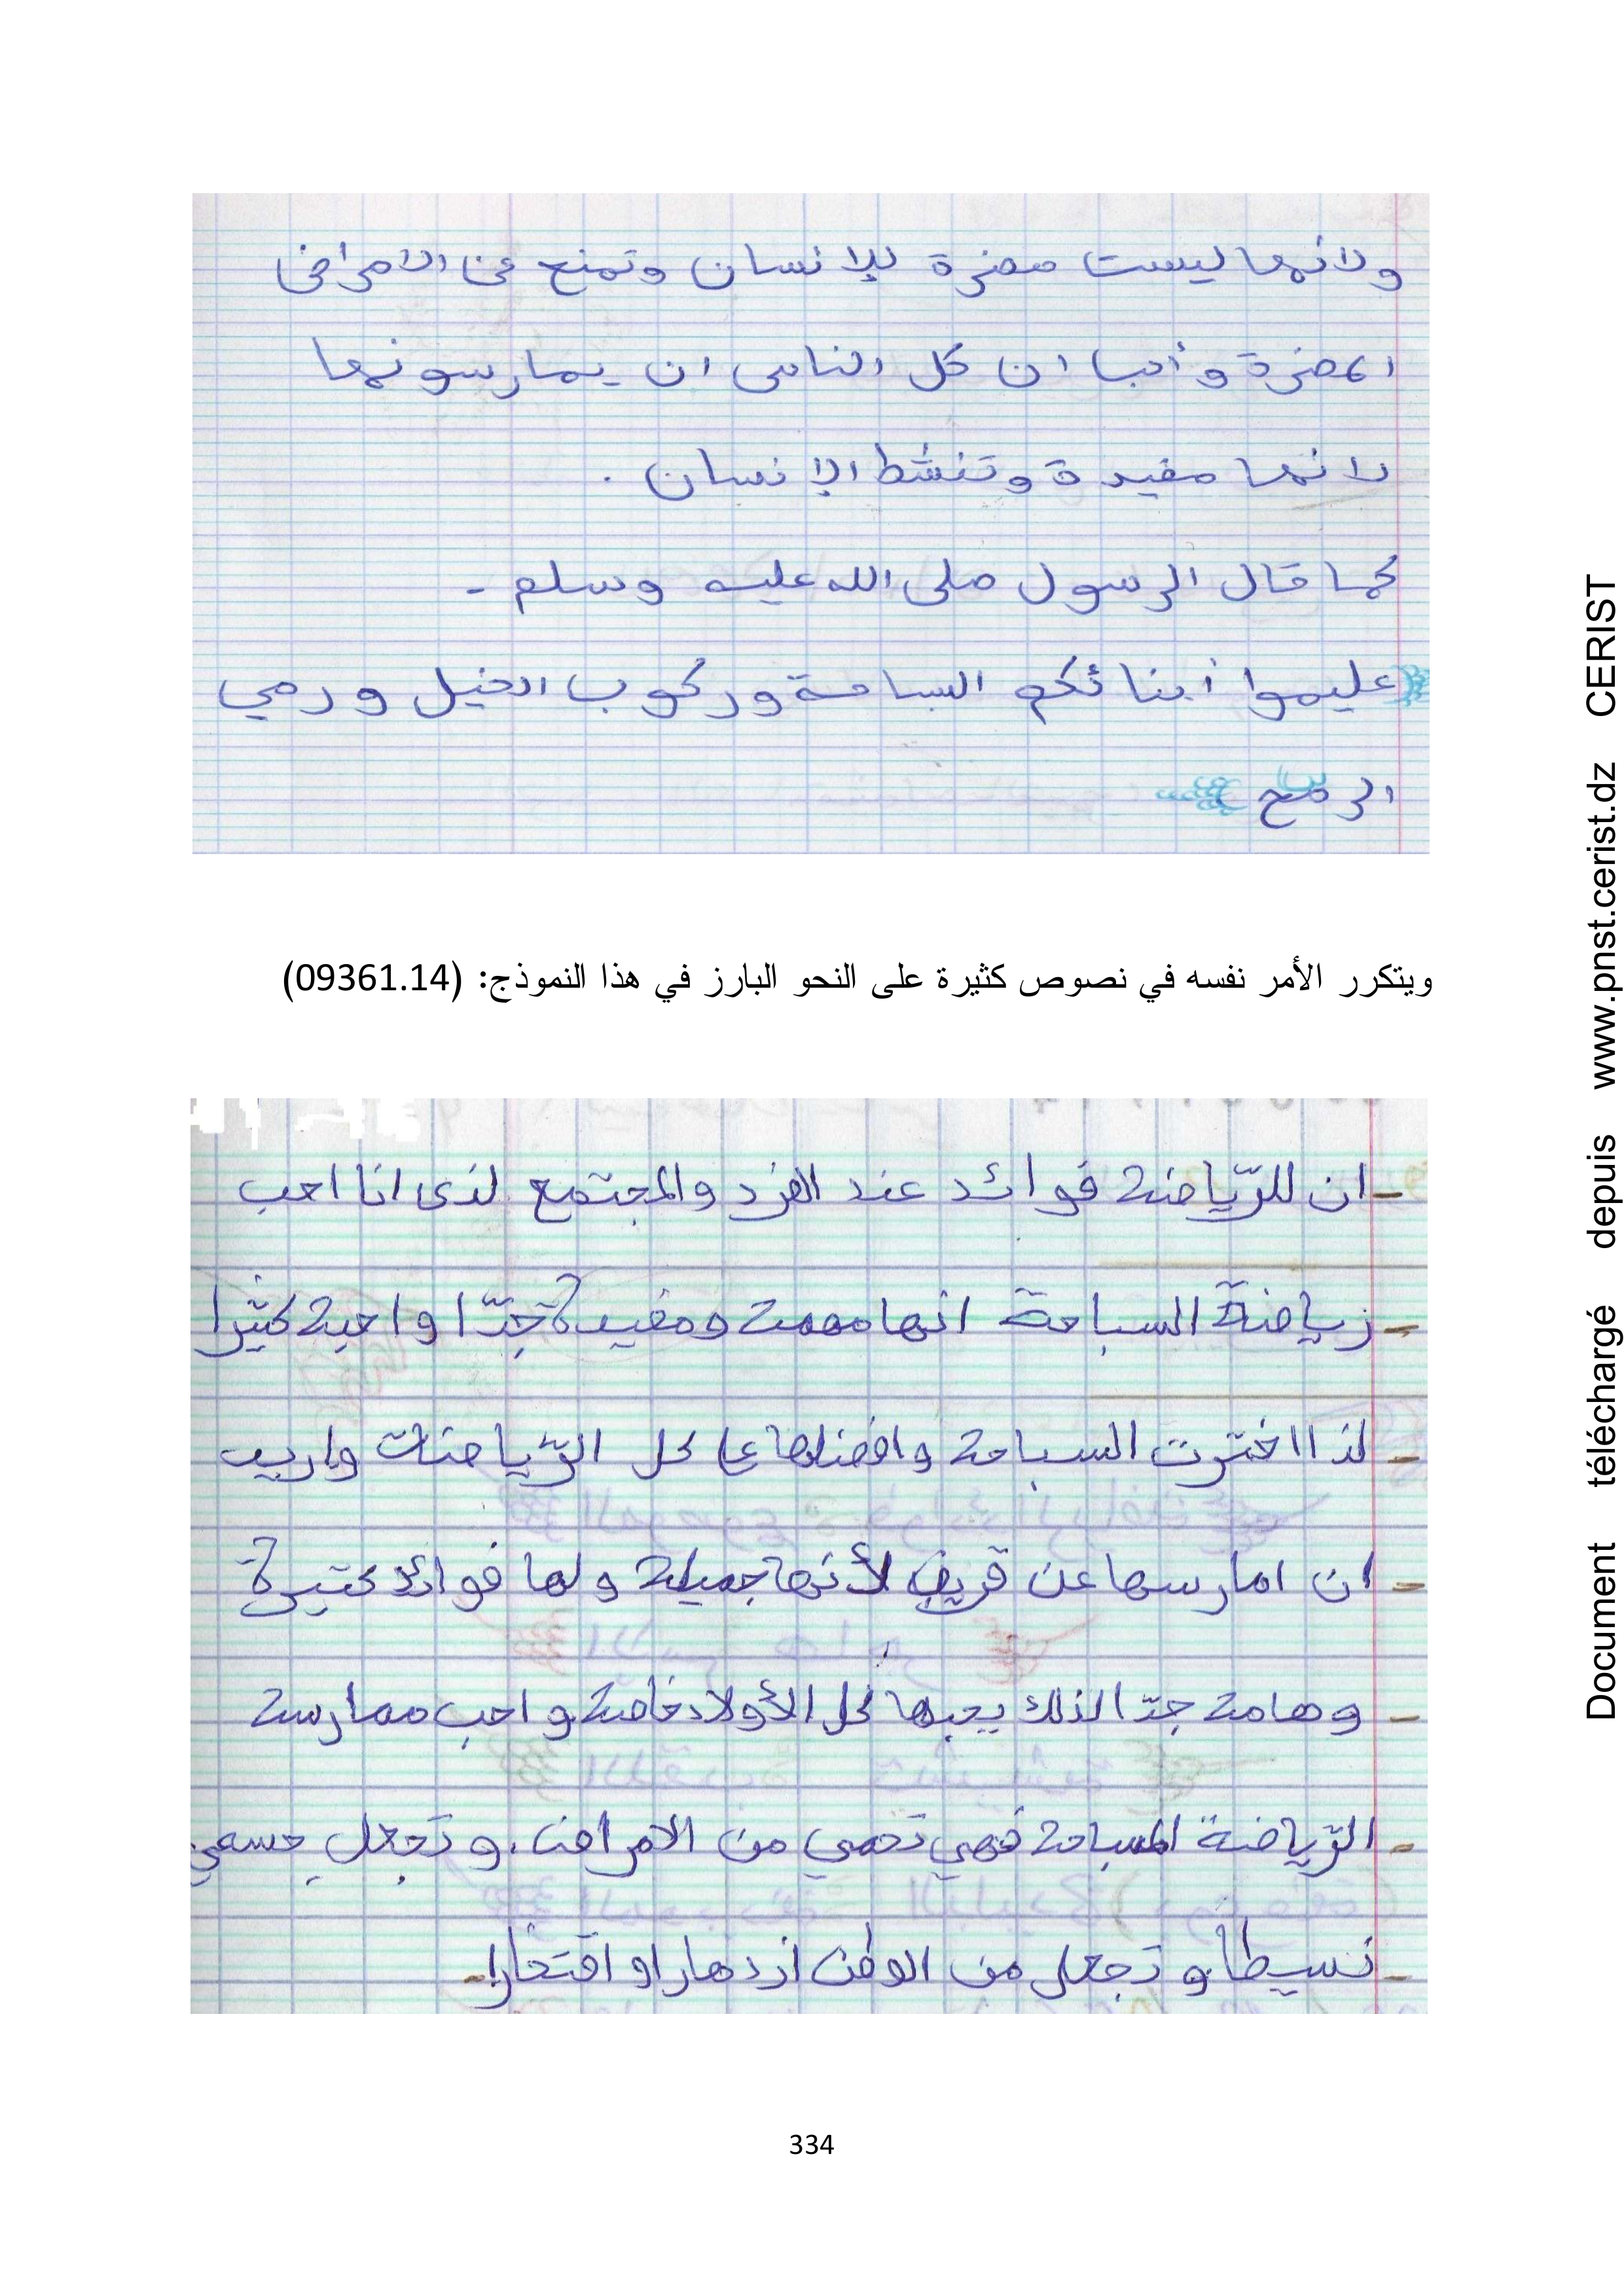 ولانها ليست مضرة للإنسان وتمنع عن الامراض
المضرة وأحب ان كل الناس ان يمارسونها
لانها مفيدة وتنشط الإنسان .
كما قال الرسول صلى الله عليه وسلم -
عليموا أبنائكم السباحة وركوب الخيل ورمي
الرمح
ويتكرر الأمر نفسه في نصوص كثيرة على النحو البارز في هذا النموذج: (09361.14)
- ان للرّياضة فوائد عند الفرد والمجتمع لذى انا احب
- رياضة السباحة انها مهمة ومفيدة جدّا و احبه كثيرا
- لذا اخترت السباحة وافضلها على كل الرّياضات واريد
- ان امارسها عن قريب لأنها جميلة ولها فوائد كتيرة
- وهامة جدّا لذلك يحبها كل الأولاد خاصة و احب ممارسة
- الرّياضة السباحة فهي تحمي من الامراض . و تجعل جسمي
- نسيطا و تجعل من الوطن ازدهارا و افتخارا -
334
Document téléchargé depuis www.pnst.cerist.dz CERIST